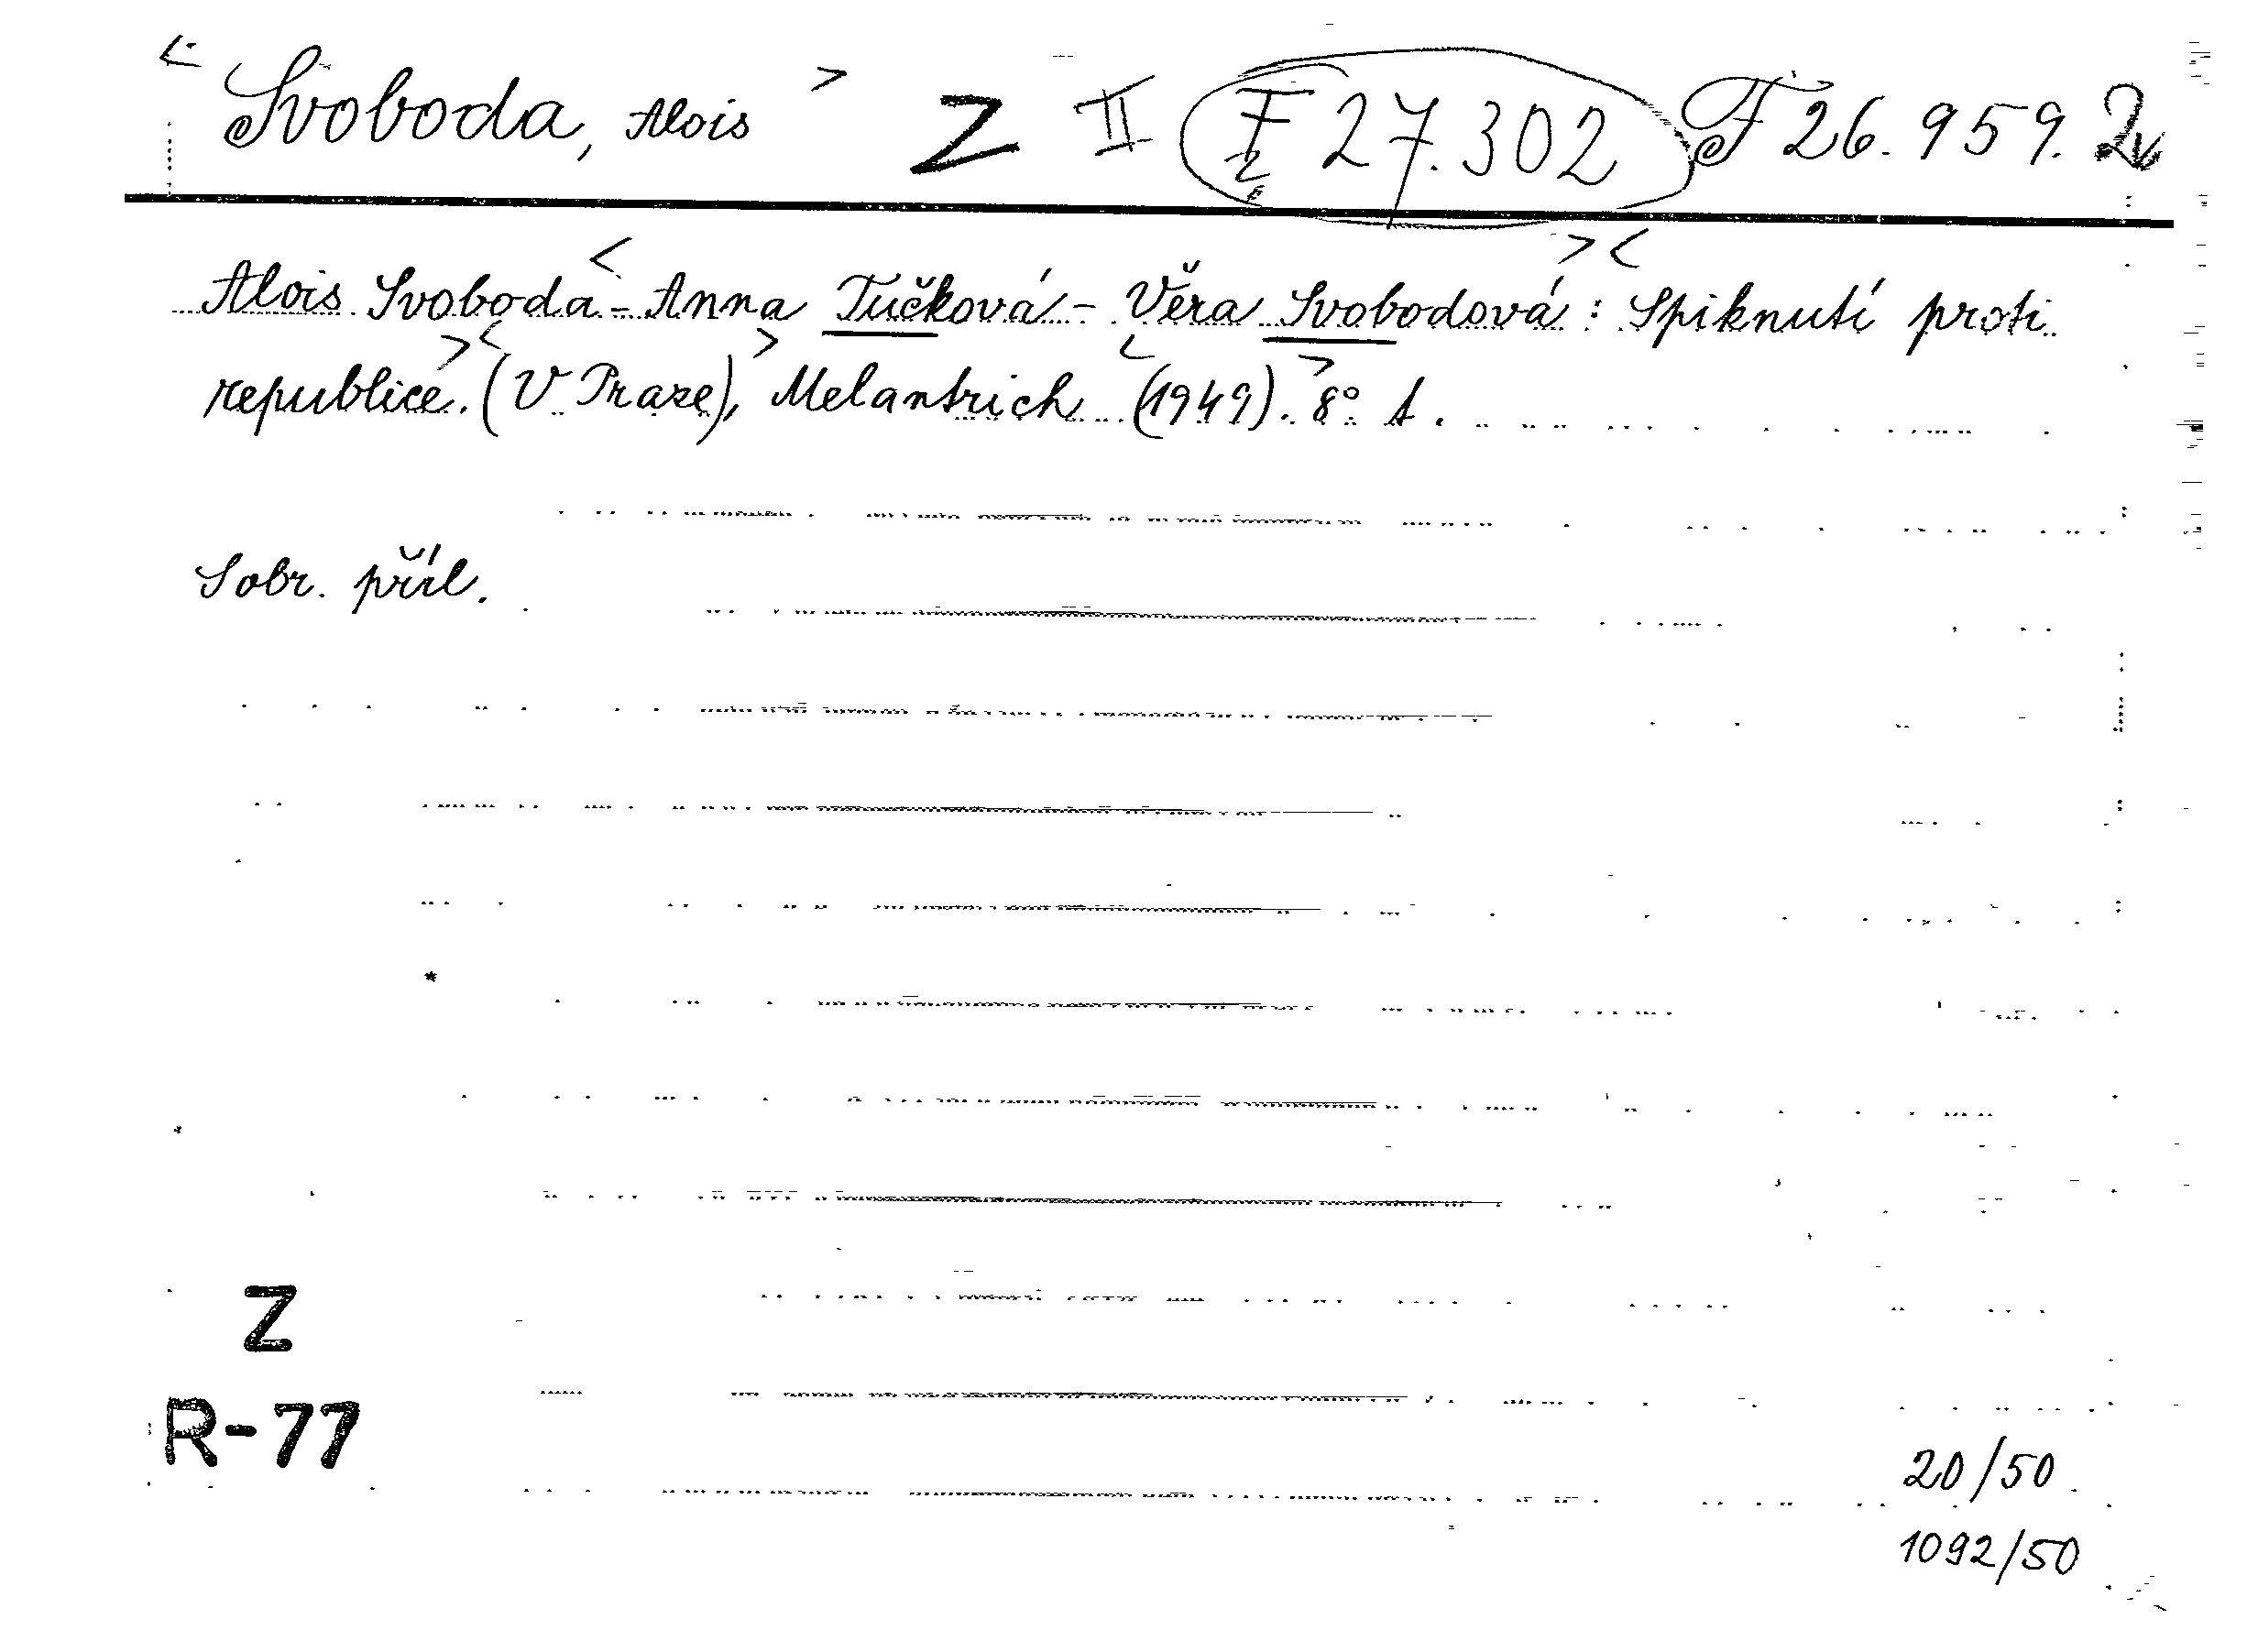 < Svoboda, Alois > Z II F 27.302 F 26.959. 2
Alois Svoboda < - Anna Tučková - Věra Svobodová > < : Spiknutí proti
republice. > < (V Praze), > Melantrich < (1949). > 8°.
S obr. příl.
Z
R-77
20/50
1092/50